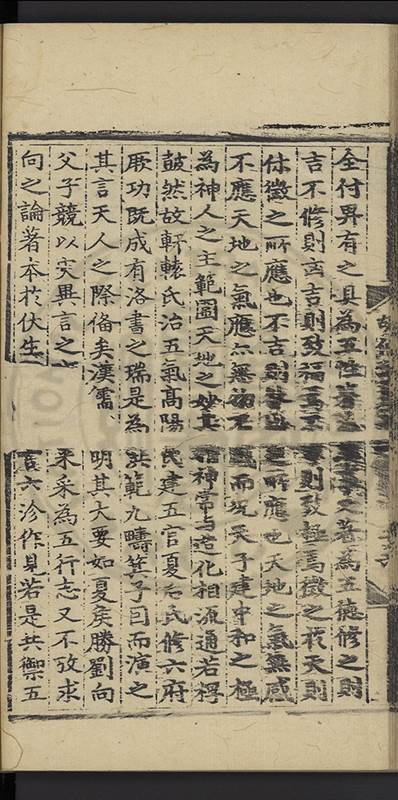 全付畀有之具為五性著之為五德修之則
吉不修則凶吉則致福焉不則致極焉徵之於天則
休徵之所應也不吉則咎徵之所應也天地之氣無感
不應天地之氣應亦無物不感而況天子建中和之極
為神人之主範圍天地之妙其精神常與造化相流通若桴
鼓然故軒轅氏治五氣高陽氏建五官夏后氏修六府
厥功既成有洛書之瑞是為洪範九疇箕子因而演之
其言天人之際備矣漢儒明其大要如夏侯勝劉向
父子競以災異言之采為五行志又不攷求
向之論著本於伏生言六沴作見若是共禦五